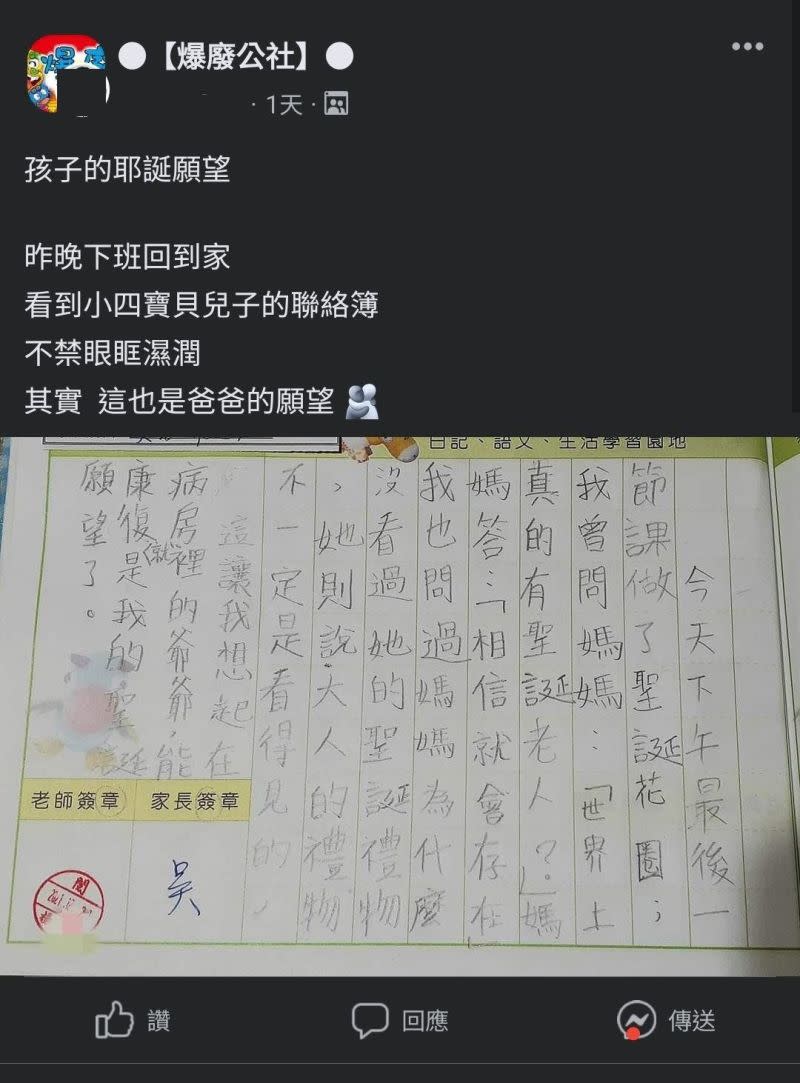 ●【爆廢公社】●
· 1天 ·
孩子的耶誕願望
昨晚下班回到家
看到小四寶貝兒子的聯絡簿
不禁眼眶濕潤
其實 這也是爸爸的願望
日記、語文、生活學習園地
今天下午最後一
節課做了聖誕花圈；
我曾問媽媽：「世界上
真的有聖誕老人？」媽
媽答：「相信就會存在」
我也問過媽媽為什麼
沒看過她的聖誕禮物
，她則說大人的禮物
不一定是看得見的，
這讓我想起在
病房裡的爺爺，能
康復就是我的聖誕
願望了。
老師簽章
家長簽章
吳
閱
讚
回應
傳送